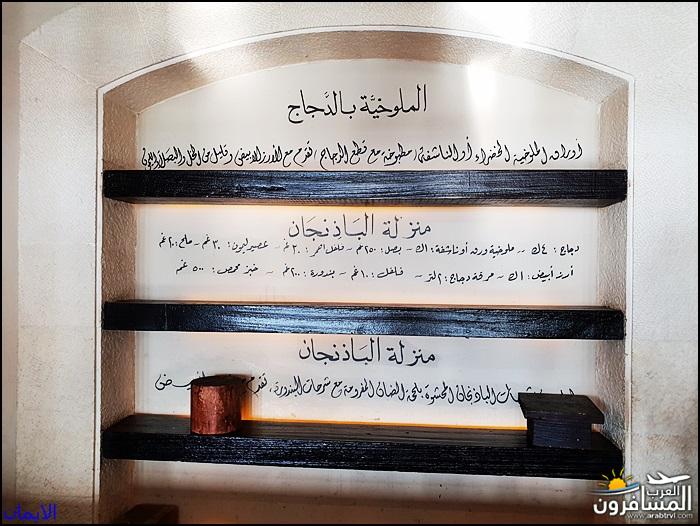 الملوخيَّة بالدَّجاج
أوراق الملوخية الخضراء أو الناشفة، مطبوخة مع قطع الدجاج، تقدم مع الأرز الأبيض وقليل من الخل والبصل
منزلة البَاذنجَان
دجاج: ٤ك -- ملوخية ورق أو ناشفة: ١ك -- بصل: ٢٥٠غم -- فلفل احمر: ٣٠غم -- عصير ليمون: ٣٠غم -- ملح: ٢٠غم
أرز أبيض: ١ك -- مرقة دجاج: ٢لتر -- فلفل: ١٠غم -- بندورة: ٢٠٠غم -- خبز محمص: ٥٠٠غم
منزلة البَاذنجان
الباذنجان المحشوة بلحمة الضان المفرومة مع شرحات البندورة، تقدم
العرب
المسافرون
www.arabtrvl.com
الايمان